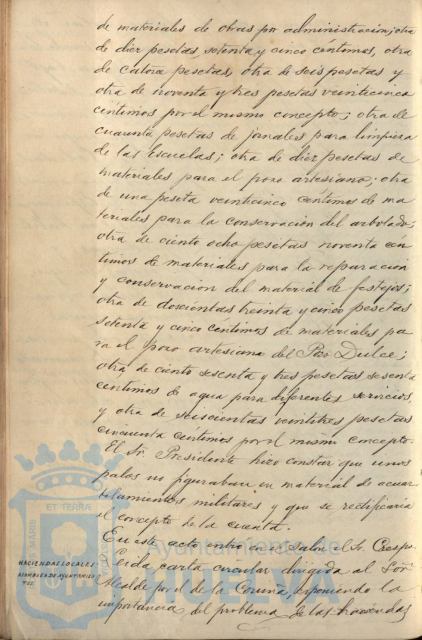 de materiales de obras por administracion; otra
de diez pesetas, setenta y cinco céntimos, otra
de catorce pesetas, otra de seis pesetas y
otra de noventa y tres pesetas veinticinco
centimos por el mismo concepto; otra de
cuarenta pesetas de jornales para limpieza
de las Escuelas; otra de diez pesetas de
materiales para el pozo artesiano; otra
de una peseta veinticinco centimos de ma
teriales para la conservacion del arbolado;
otra de ciento ocho pesetas noventa cen
timos de materiales para la reparacion
y conservacion del material de festejos;
otra de doscientas treinta y cinco pesetas
setenta y cinco centimos de materiales pa
ra el pozo artesiano del Dulce;
otra de ciento sesenta y tres pesetas sesenta
centimos de agua para diferentes servicios,
y otra de seiscientas veintitres pesetas
cincuenta centimos por el mismo concepto.
El Sr. Presidente hizo constar que unos
palos no figuraban en material de acuar
telamientos militares y que se rectificaria
el concepto de la cuenta.
En este acto entro en el Salon el Sr. Crespo.
HACIENDAS LOCALES:
ASAMBLEA DE AYUNTAMIEN
TOS.
Leida carta circular dirigida al Sor
Alcalde por el de la Coruña, exponiendo la
importancia del problema de las haciendas
ET TERRA
Ayuntamiento de
HUELVA